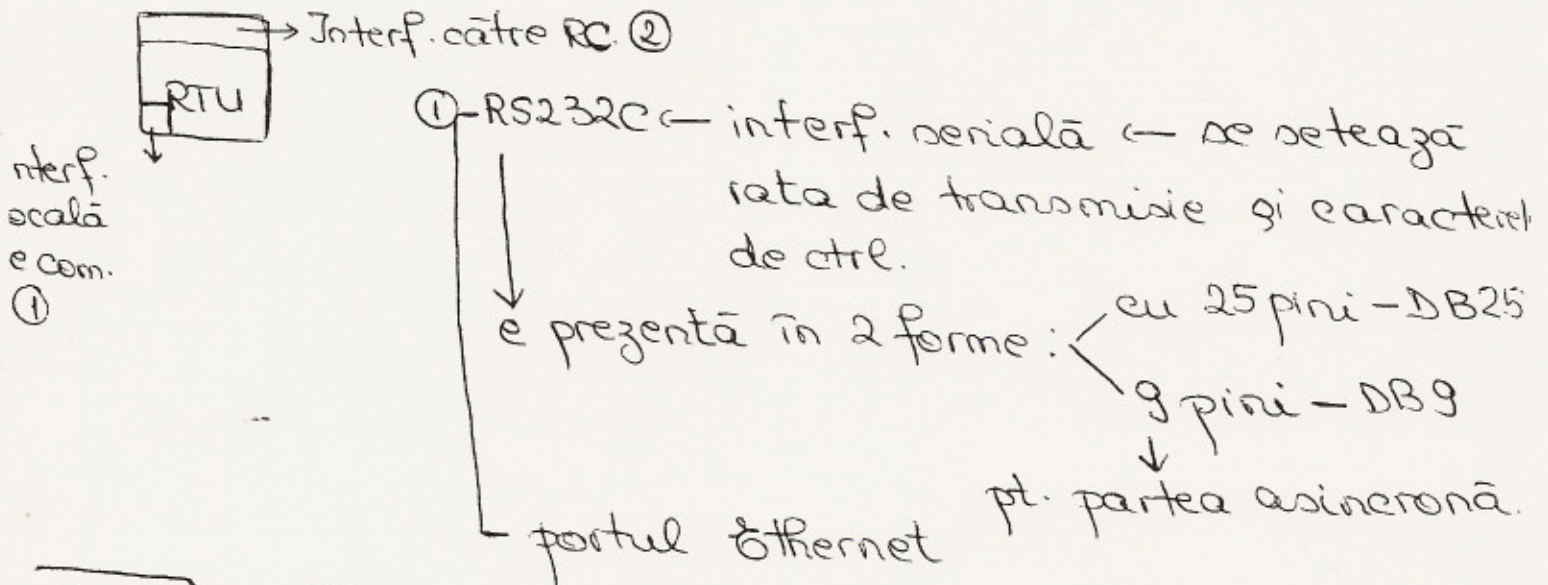 → Interf. către RC. ②
RTU
nterf.
ocală
e com.
①
① - RS232C ← interf. serială ← se setează
rata de transmisie și caracterel
de ctrl.
e prezentă în 2 forme:
cu 25 pini - DB25
9 pini - DB9
pt. partea asincronă.
portul Ethernet